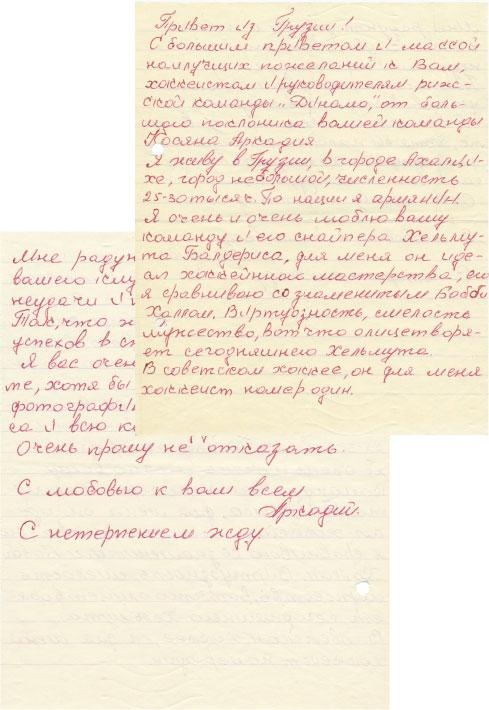 Привет из Грузии!
С большим приветом и массой
наилучших пожеланий к Вам,
хоккеистам и руководителям риж-
ской команды „Динамо,” от боль-
шого поклонника вашей команды
Косяна Аркадия
Я живу в Грузии, в городе Ахалци-
хе, город небольшой, численность
25-30 тысяч. По нации я армянин.
Я очень и очень люблю вашу
команду и его снайпера Хельму-
та Балдериса, для меня он иде-
ал хоккейного мастерства, его
я сравниваю со знаменитым Бобби
Халлом. Виртуозность, смелость
мужество, вот что олицетворя-
ет сегодняшнего Хельмута.
В советском хоккее, он для меня
хоккеист номер один.
Мне радун
вашего
неудачи и
Так, что
успехов в
Я вас очен
те, хотя бы
фотографи
са и всю
Очень прошу не отказать.
С любовью к вам всем
Аркадий.
С нетерпением жду